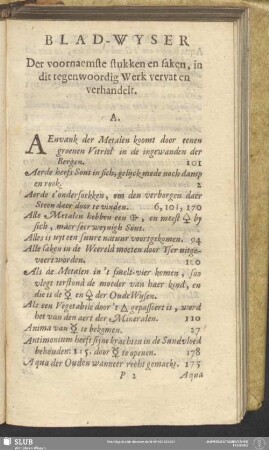 BLAD-WYSER
Der voornaemste stukken en saken, in
dit tegenwoordig Werk vervat en
verhandelt.
A.
AEnvank der Metalen koomt door eenen
groenen Vitriol in de ingewanden der
Bergen. 101
Aerde heeft Sout in sich, gelijck mede noch damp
en rook. 2
Aerde t'ondersoekken, om den verborgen daer
Steen deer door te vinden. 6, 101, 170
Alle Metalen hebben een 🜨, en meest ☿ by
sich, maer seer weynigh Sout.
Alles is uyt een suure natuur voortgekomen. 94
Alle saken in de Wereld moeten door Yser uitge-
voert worden. 110
Als de Metalen in 't smelt-vier komen, soo
vlegt terstond de moeder van haer kind, en
die is de ☿ en 🜍 der Oude Wysen.
Als een Vegetabile door 't 🜂 gepasseert is, werd
het van den aert der Mineralen. 110
Anima van ☿ te bekomen. 27
Antimonium heeft sijne krachten in de Sandvloed
behouden: 115. door ☿ te openen. 178
Aqua der Ouden wanneer recht gemackt. 175
P 2 Aqua
SLUB
Wir führen Wissen.